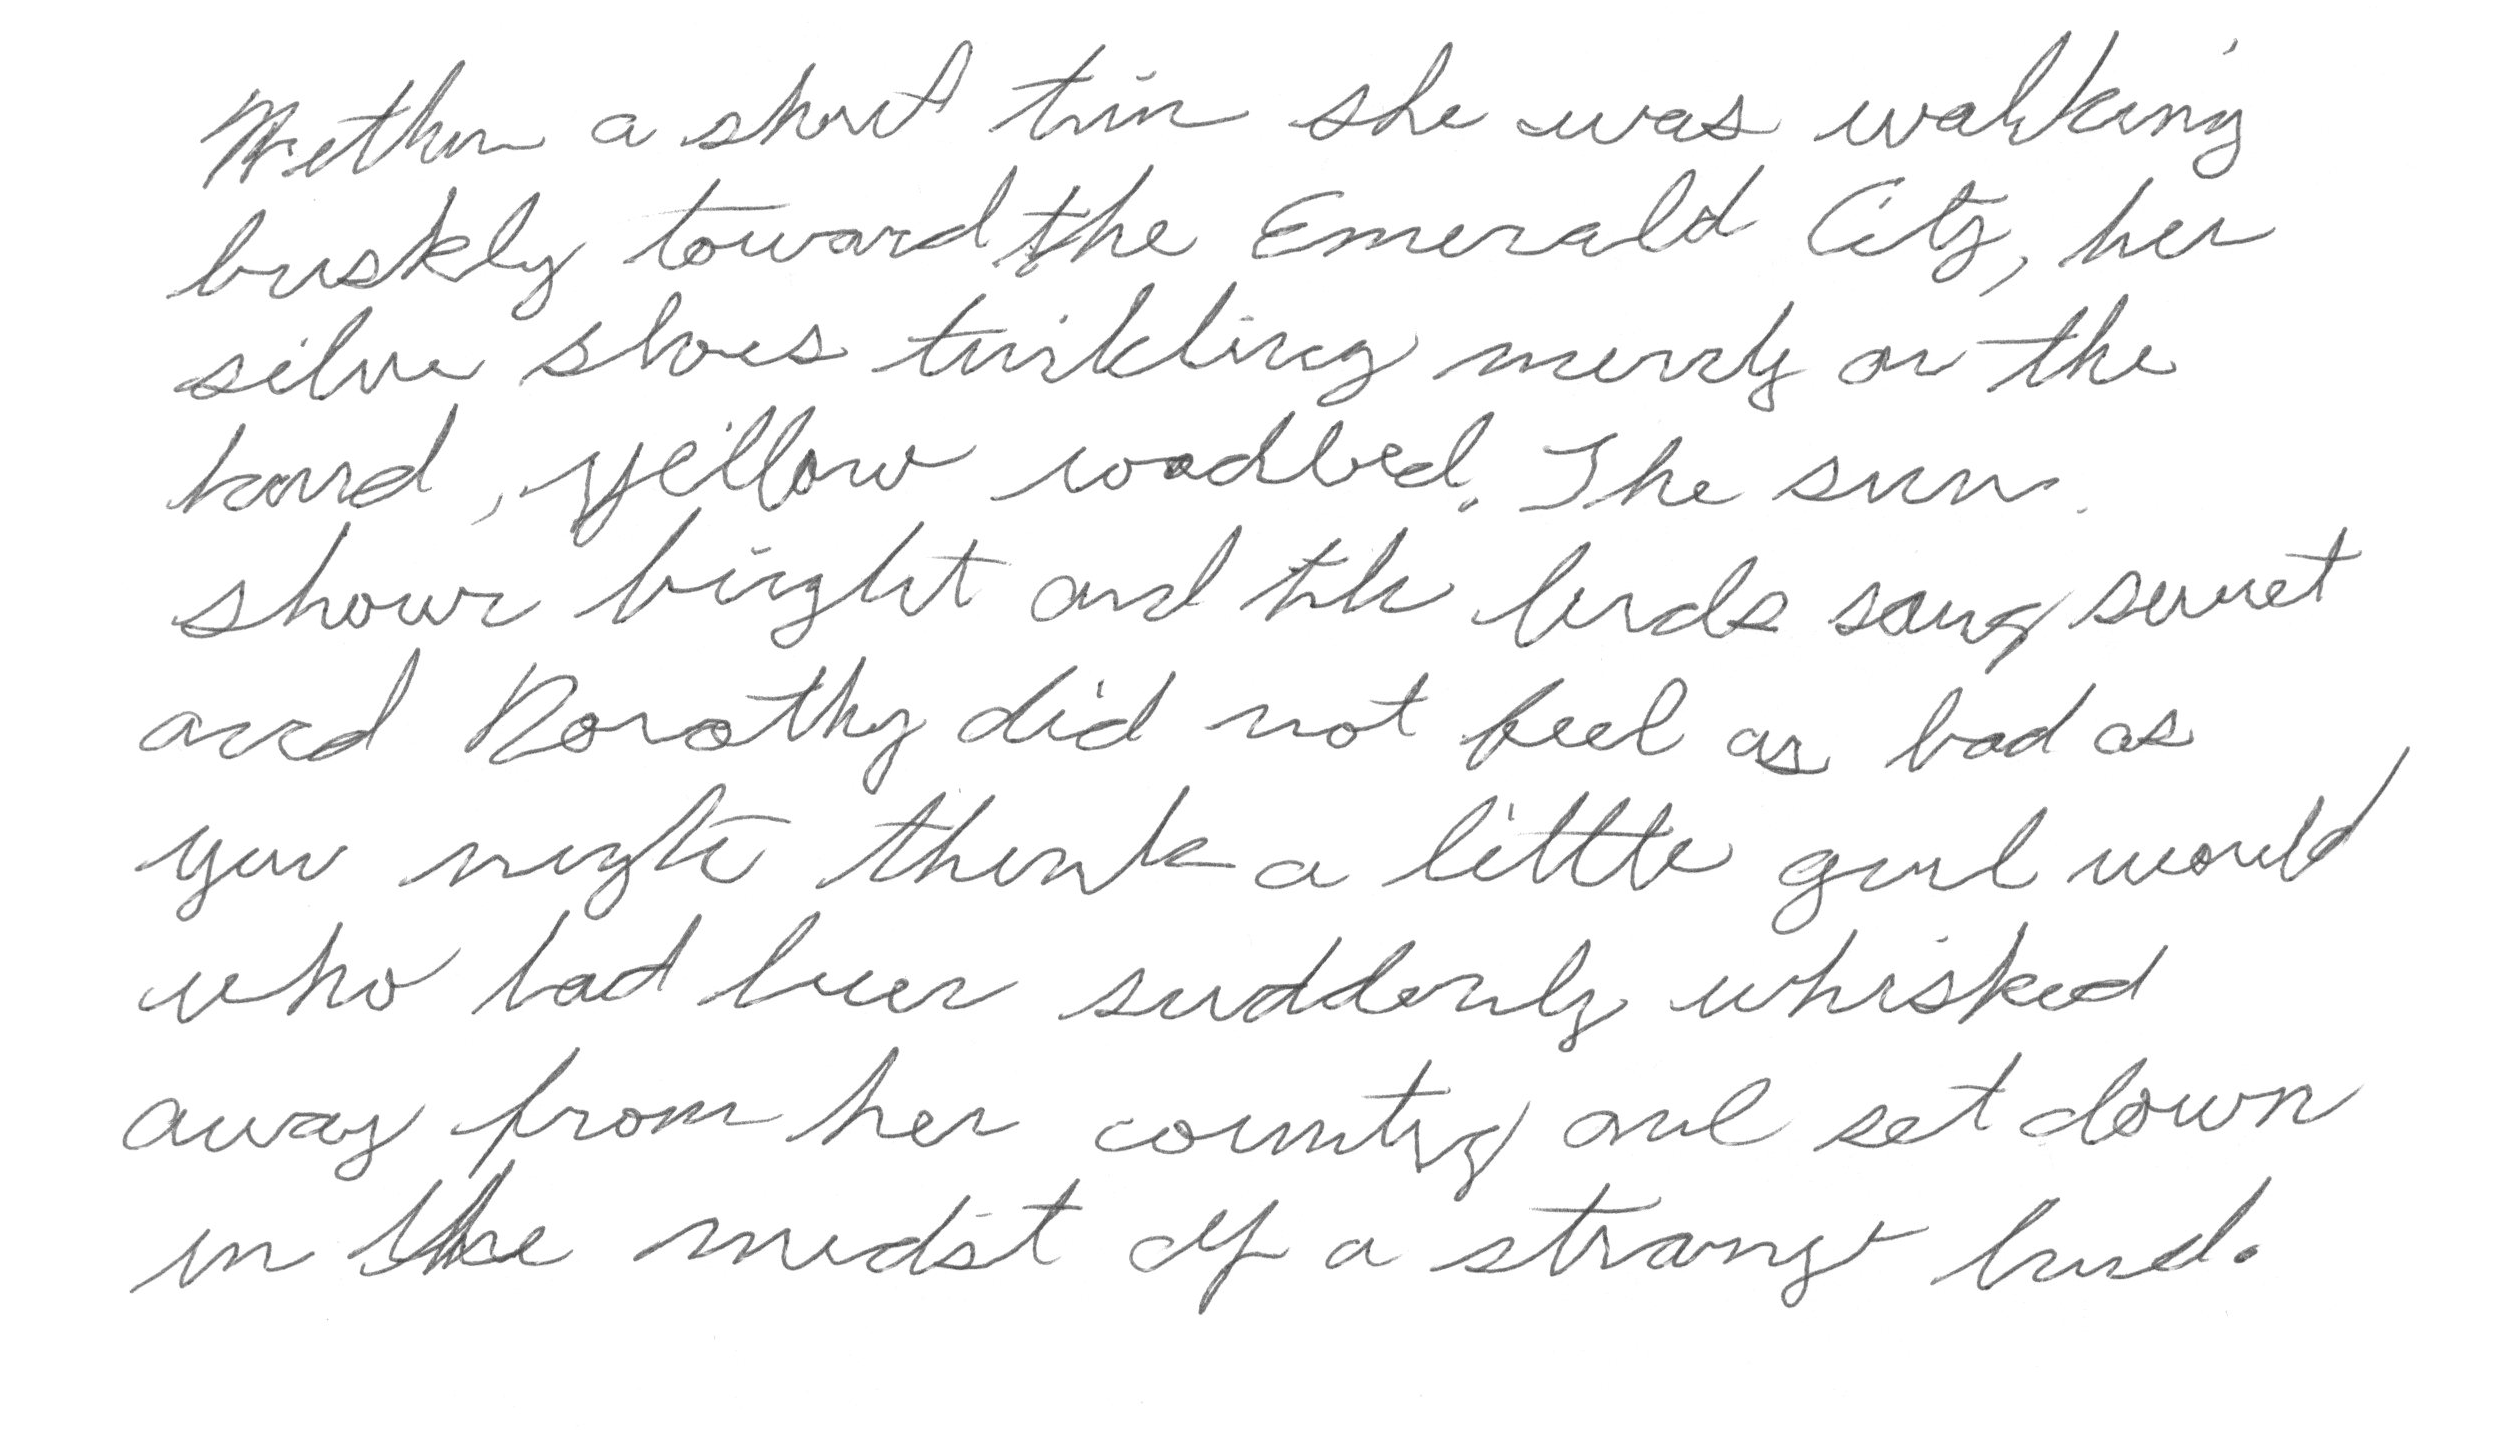 Within a short time she was walking
briskly toward the Emerald City, her
silver shoes tinkling merrily on the
hard, yellow roadbed. The sun
shone bright and the birds sang sweet
and Dorothy did not feel as bad as
you might think a little girl would
who had been suddenly whisked
away from her country and set down
in the midst of a strange land.